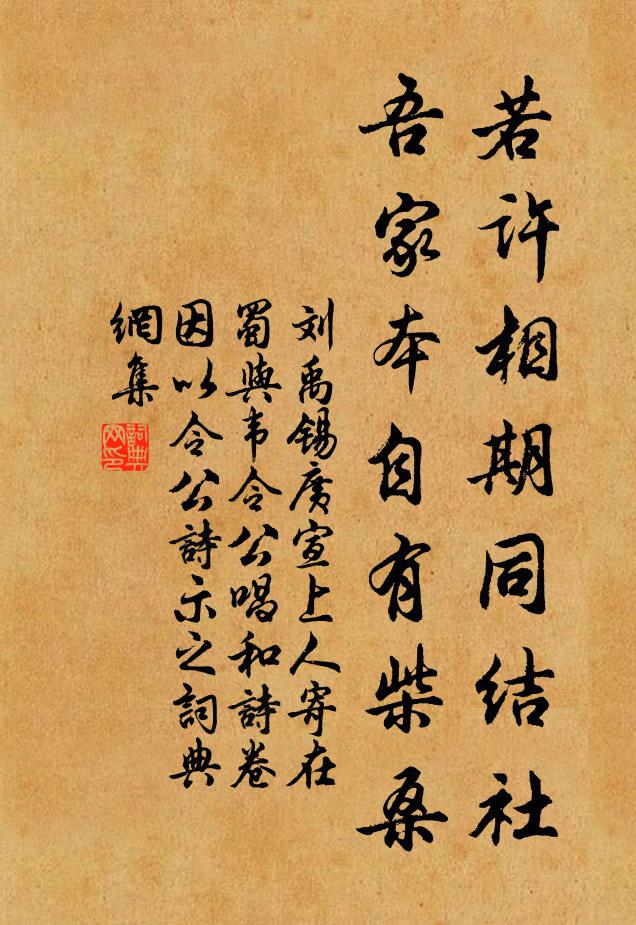 若许相期同结社
吾家本自有柴桑
刘禹锡广宣上人寄在
蜀与韦令公唱和诗卷
因以令公詩示之詞典
網集
詞典網印